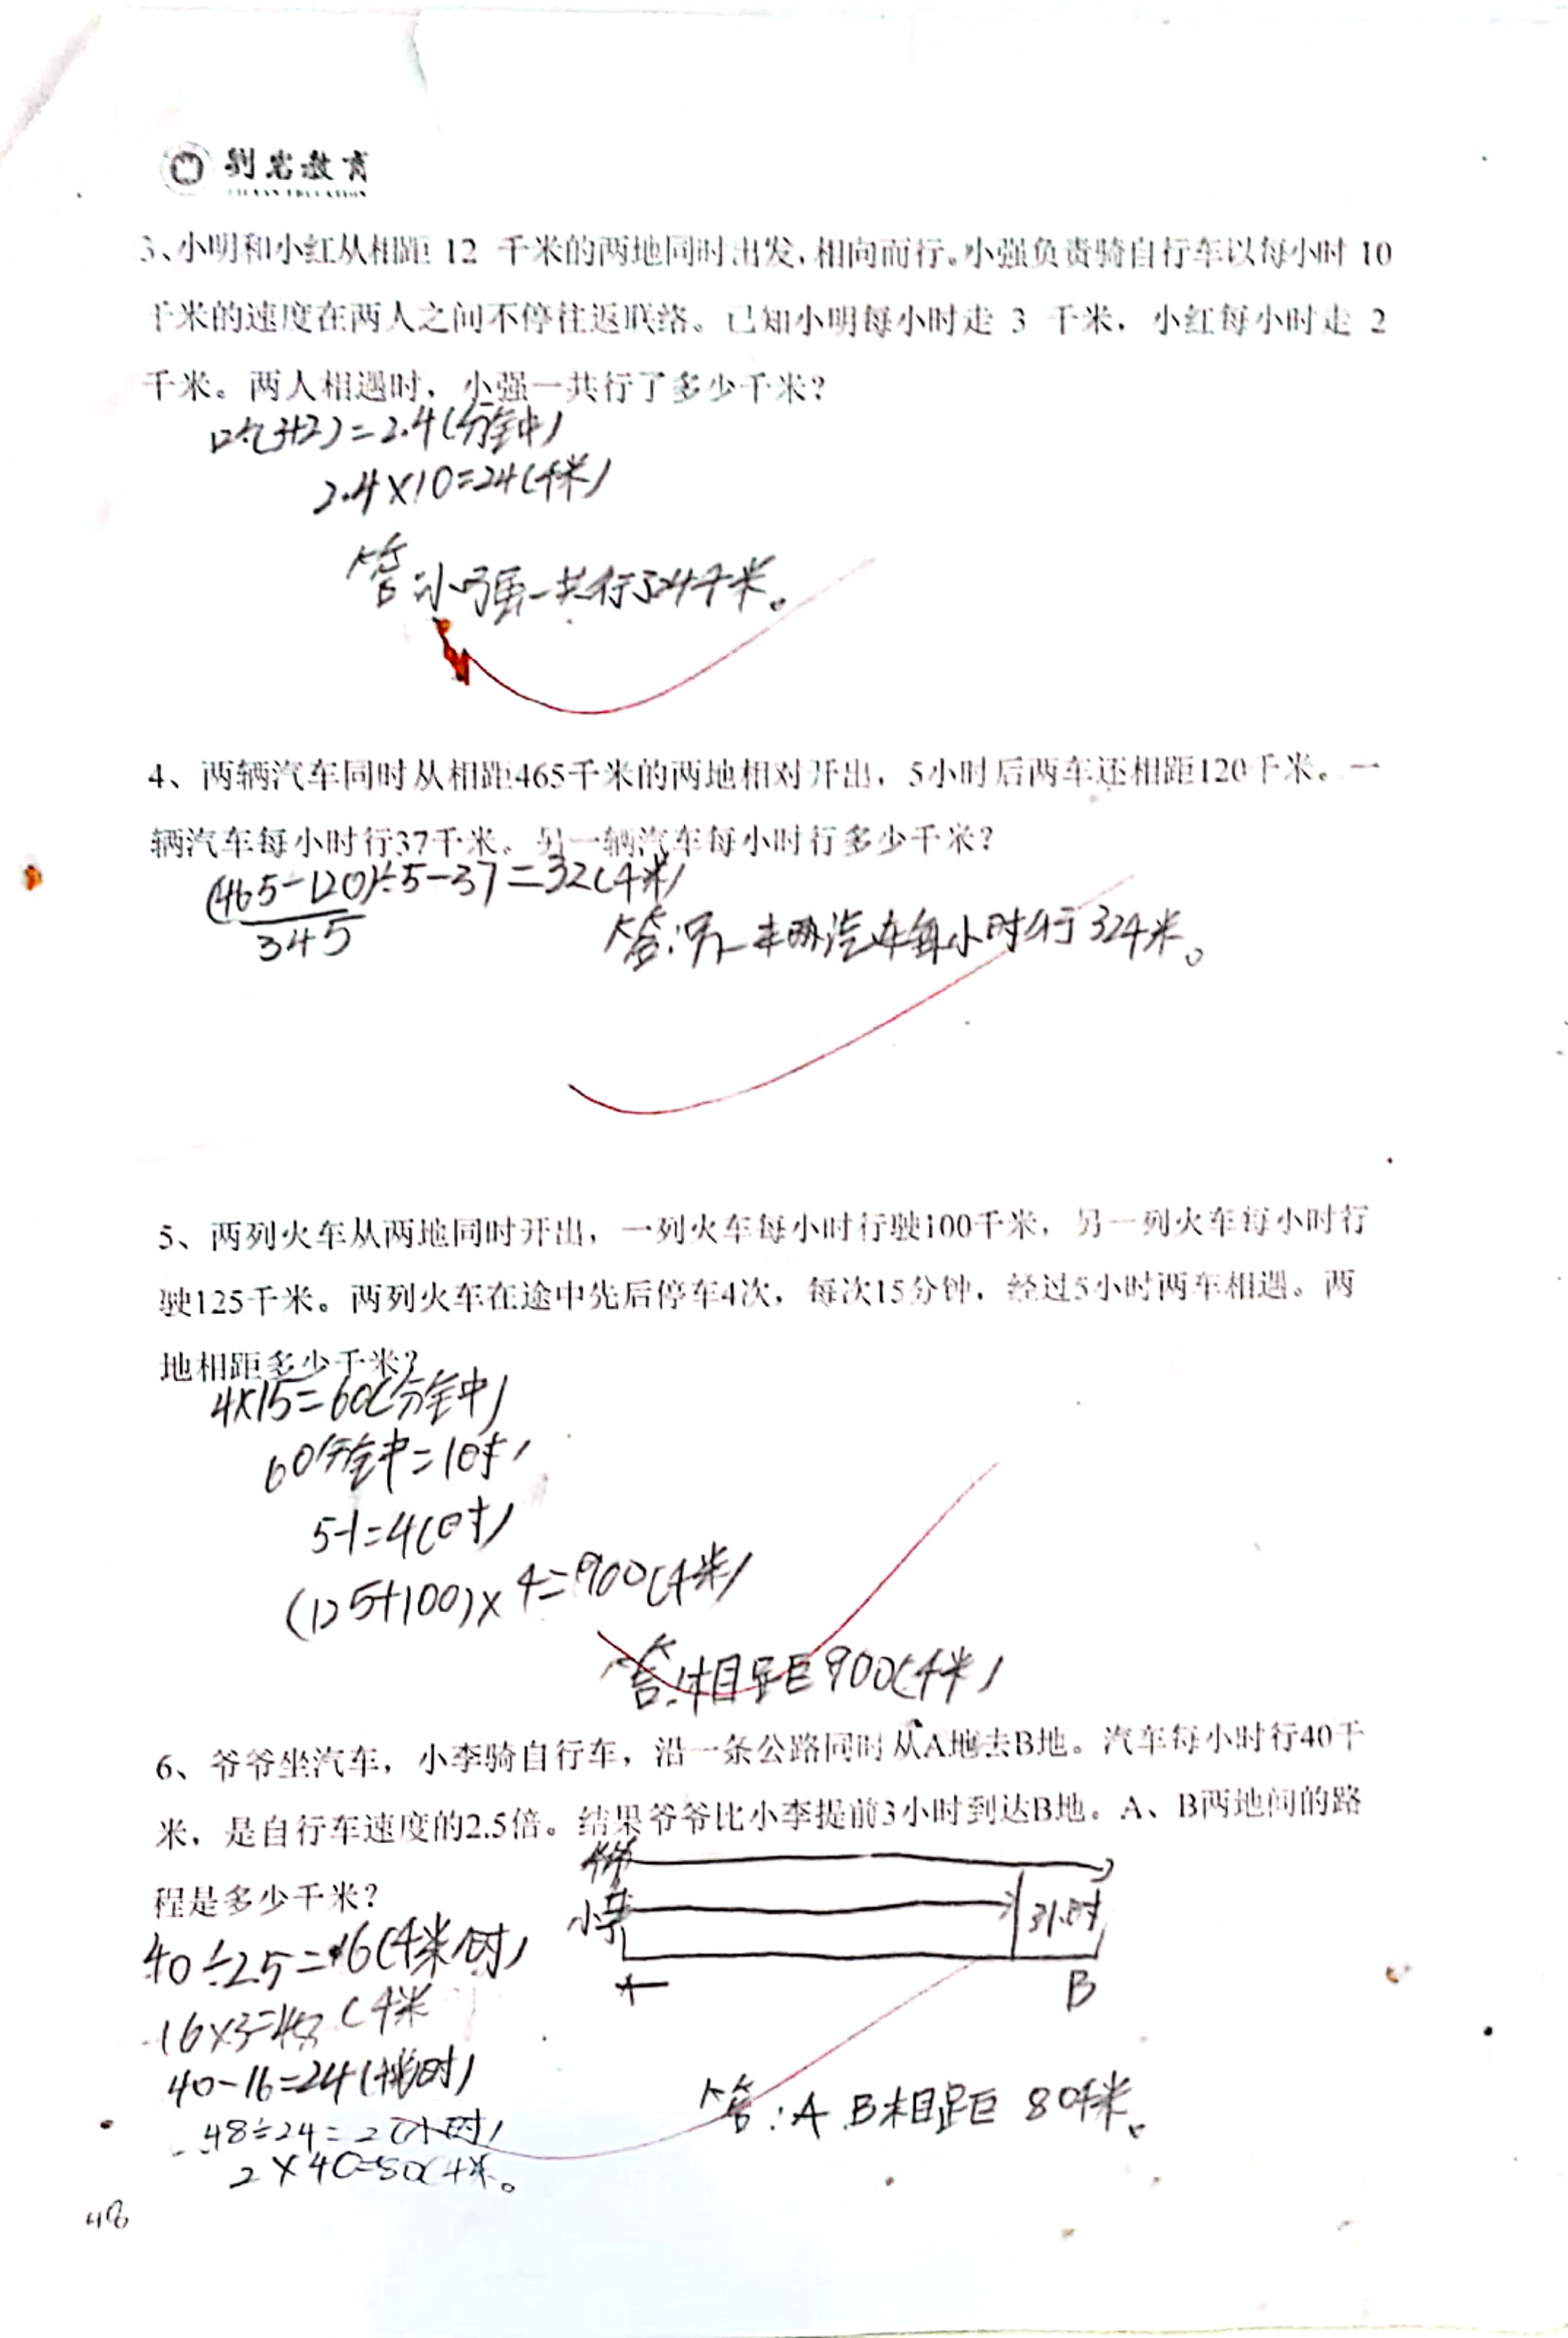 教育
3、小明和小红从相距 12 千米的两地同时出发,相向而行。小强负责骑自行车以每小时 10
千米的速度在两人之间不停往返联络。已知小明每小时走 3 千米，小红每小时走 2
千米。两人相遇时，小强一共行了多少千米？
12÷(3+2)=2.4(分钟)
2.4×10=24(千米)
答:小强一共行了24千米。
4、两辆汽车同时从相距465千米的两地相对开出，5小时后两车还相距120千米。一
辆汽车每小时行37千米。另一辆汽车每小时行多少千米？
(465-120)÷5-37=32(千米)
345
答:另一辆汽车每小时行32千米。
5、两列火车从两地同时开出，一列火车每小时行驶100千米，另一列火车每小时行
驶125千米。两列火车在途中先后停车4次，每次15分钟，经过5小时两车相遇。两
地相距多少千米？
4×15=60(分钟)
60分钟=1时
5-1=4(时)
(125+100)×4=900(千米)
答:相距900(千米)
6、爷爷坐汽车，小李骑自行车，沿一条公路同时从A地去B地。汽车每小时行40千
米，是自行车速度的2.5倍。结果爷爷比小李提前3小时到达B地。A、B两地间的路
程是多少千米？
爷爷
小李
3小时
A
B
40÷2.5=16(千米/时)
16×3=48(千米
40-16=24(千米/时)
48÷24=2(小时)
2×40=80(千米。
答:A B相距80千米。
48